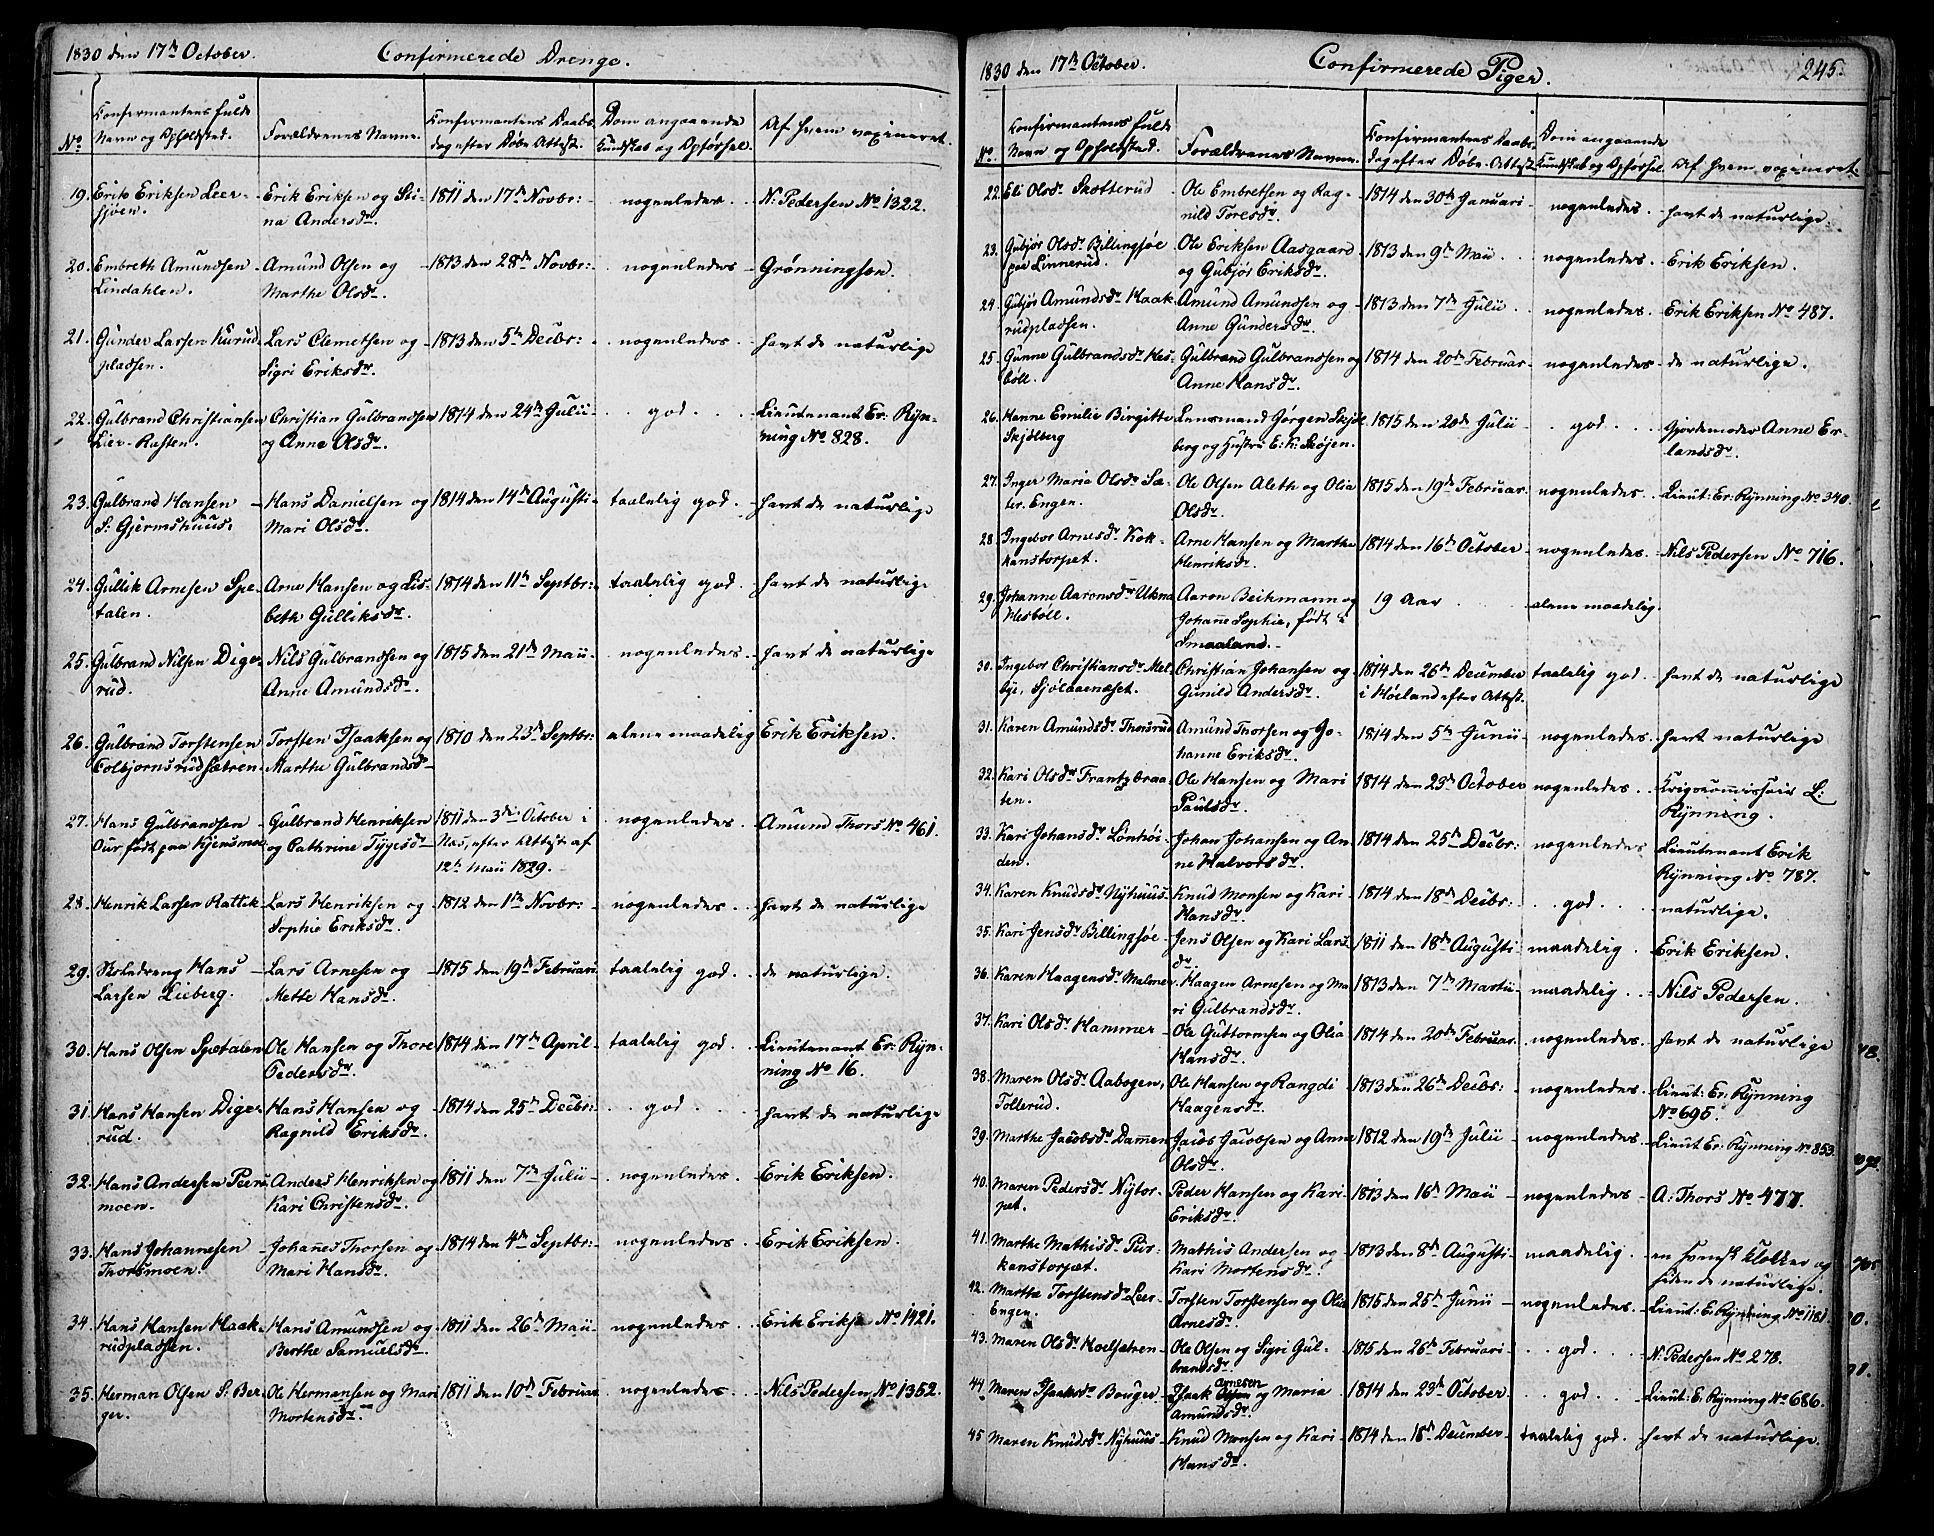 1830 den 17de October. Confirmerede Drenge.
No. Confirmantens fulde Navn og Opholdsted. Forældrenes Navne. Confirmantens Daabsdag efter Døbe-Attest. Dom angaaende Kundskab og Opførsel. Af hvem vaxineret.
19. Erik Eriksen Leer- Erik Eriksen og Sti- 1811 den 17de Novbr: nogenledes. N: Pedersen No 1322.
sjøen. na Andersdr.
20. Embreth Amundsen Amund Olsen og 1813 den 28de Novbr: nogenledes Grønningsøn.
Lindahlen. Marthe Olsdr.
21. Gunder Larsen Kurud- Lars Clemetsen og 1813 den 5te Decbr: nogenledes. havt de naturlige
pladsen. Sigri Eriksdr.
22. Gulbrand Christiansen Christian Gulbrandsen 1814 den 24de Julii god. Lieutenant Er: Ryn-
Lier-Rasten. og Anne Olsdr. ning No 828.
23. Gulbrand Hansen Hans Danielsen og 1814 den 14de Augusti taalelig god. havt de naturlige
S: Gjermshuus. Mari Olsdr.
24. Gullik Arnesen Spe- Arne Hansen og Lis- 1814 den 11te Septbr: taalelig god. havt de naturlige
talen. beth Gulliksdr.
25. Gulbrand Nilsen Dige- Nils Gulbrandsen og 1815 den 21de Maii nogenledes. havt de naturlige
rud. Anne Amundsdr.
26. Gulbrand Torstensen Torsten Isaaksen og 1810 den 23de Septbr: alene maadelig Erik Eriksen.
Colbjørnsrudsætren. Marthe Gulbrandsdr
27. Hans Gulbrandsen Gulbrand Henriksen 1811 den 3die October i nogenledes. Amund Thors No 461.
Our født paa Kjensmoe og Cathrine Tygesdr Næs, efter Attest af
12te Maii 1829.
28. Henrik Larsen Rattik Lars Henriksen og 1812 den 1te Novbr: nogenledes. havt de naturlige
Sophie Eriksdr.
29. Skoledreng Hans Lars Arnesen og 1815 den 19de Februari taalelig god. de naturlige.
Larsen Lieberg. Mette Hansdr.
30. Hans Olsen Spetalen Ole Hansen og Thore 1814 den 17de April taalelig god. Lieutenant Er: Ryn-
Pedersdr. ning No 16.
31. Hans Hansen Dige- Hans Hansen og 1814 den 25de Decbr: god. havt de naturlige
rud. Ragnild Eriksdr.
32. Hans Andersen Peer- Anders Henriksen og 1811 den 7de Julii nogenledes. Erik Eriksen.
moen. Kari Christensdr.
33. Hans Johannesen Johannes Thorsen og 1814 den 4de Septbr: nogenledes. Erik Eriksen.
Thorsmoen. Mari Hansdr.
34. Hans Hansen Haak- Hans Amundsen og 1811 den 26de Maii nogenledes. Erik Eriksen No 1421.
rudpladsen. Berthe Samuelsdr.
35. Herman Olsen S: Ber- Ole Hermansen og Mari 1811 den 10de Februar nogenledes. Nils Pedersen No 1352.
ger. Mortensdr.
1830 den 17de October. Confirmerede Piger. 245.
No. Confirmantens fulde Navn og Opholdsted. Forældrenes Navne. Confirmantens Daabsdag efter Døbe-Attest. Dom angaaende Kundskab og Opførsel. Af hvem vaxineret.
22. Eli Olsdr Skotterud Ole Embretsen og Rag- 1814 den 30te Januari nogenledes. havt de naturlige.
nild Toresdr.
23. Gubjør Olsdr Billingsøe Ole Eriksen Aasgaard 1813 den 9de Maii nogenledes. Erik Eriksen.
paa Linnerud. og Gubjør Eriksdr.
24. Gubjør Amundsdr Haak- Amund Amundsen og 1813 den 7de Julii nogenledes. Erik Eriksen No 487.
rudpladsen. Anne Gundersdr.
25. Gunne Gulbrandsdr Hes- Gulbrand Gulbrandsen og 1814 den 20de Februar nogenledes. de naturlige.
bøll. Anne Hansdr.
26. Hanne Emilie Birgitte Lensmand Jørgen Skjøl- 1815 den 20de Julii god. Gjordemoder Anne Er-
Skjølberg berg og Hustru E: K: Skøjen. landsdr.
27. Inger Maria Olsdr Sæ- Ole Olsen Aleth og Olia 1815 den 19de Februar nogenledes. Lieut: Er: Rynning No 340.
ter. Engen. Olsdr.
28. Ingebor Arnesdr Kok- Arne Hansen og Marthe 1814 den 16de October nogenledes. Nils Pedersen No 716.
kanstorpet. Henriksdr.
29. Johanne Aaronsdr Ukna Aaron Beikmann og 19 Aar alene maadelig.
Hesbøll. Johanne Sophia, født i
Smaaland.
30. Ingebor Christiansdr Mel- Christian Johansen og 1814 den 26de December taalelig god. havt de naturlige
bye, Sjølaaenæset. Gunild Andersdr. i Høland efter Attest.
31. Karen Amundsdr Thorsrud Amund Thorsen og Jo- 1814 den 5te Junii nogenledes. havt naturlige
hanne Eriksdr.
32. Kari Olsdr Frantzbraa- Ole Hansen og Mari 1814 den 23de October nogenledes. Krigscommissair L:
ten. Paulsdr. Rynning.
33. Kari Johansdr Lønhøi- Johan Johansen og An- 1814 den 25de Decbr: nogenledes Lieutenant Erik
den. ne Halvorsdr. Rynning No 787.
34. Karen Knudsdr Nyhuus Knud Monsen og Kari 1814 den 18de Decbr: god. naturlige.
Hansdr.
35. Kari Jensdr Billingsøe Jens Olsen og Kari Lars- 1811 den 18de Augusti maadelig. Erik Eriksen.
dr.
36. Karen Haagensdr Malmer Haagen Arnesen og Ma- 1813 den 7de Martii maadelig. Nils Pedersen.
ri Gulbrandsdr.
37. Kari Olsdr Hammer Ole Guttormsen og Olia 1814 den 20de Februar. nogenledes. havt de naturlige
Hansdr.
38. Maren Olsdr Aabogen, Ole Hansen og Rangdi 1813 den 26de Decbr: nogenledes. Lieut: Er: Rynning
Tollerud. Haagensdr. No 695.
39. Marthe Jacobsdr Damen Jacob Jacobsen og Anne 1812 den 19de Julii nogenledes. Lieut Er: Rynning No 853.
Olsdr.
40. Maren Pedersdr Nytor- Peder Hansen og Kari 1813 den 16de Maii nogenledes A: Thors No 477.
pet. Eriksdr.
41. Marthe Mathisdr Pur- Mathis Andersen og 1813 den 8de Augusti maadelig. en svensk Klokker og
kanstorpet. Kari Mortensdr. siden de naturlige.
42. Marthe Torstensdr Leer- Torsten Torstensen og Olia 1815 den 25de Junii nogenledes. Lieut: E: Rynning No 1181
Engen. Arnesdr.
43. Maren Olsdr Hoelsætren Ole Olsen og Sigri Gul- 1815 den 26de Februari god. N: Pedersen No 278.
brandsdr.
44. Maren Isaaksdr Bouger Isaak Arnesen og Maria 1814 den 23de October. god. Lieut: E: Rynning No 686.
Amundsdr.
45 Maren Knudsdr Nyhuus Knud Monsen og Kari 1814 den 18de December taalelig god. havt de naturlige.
Hansdr.